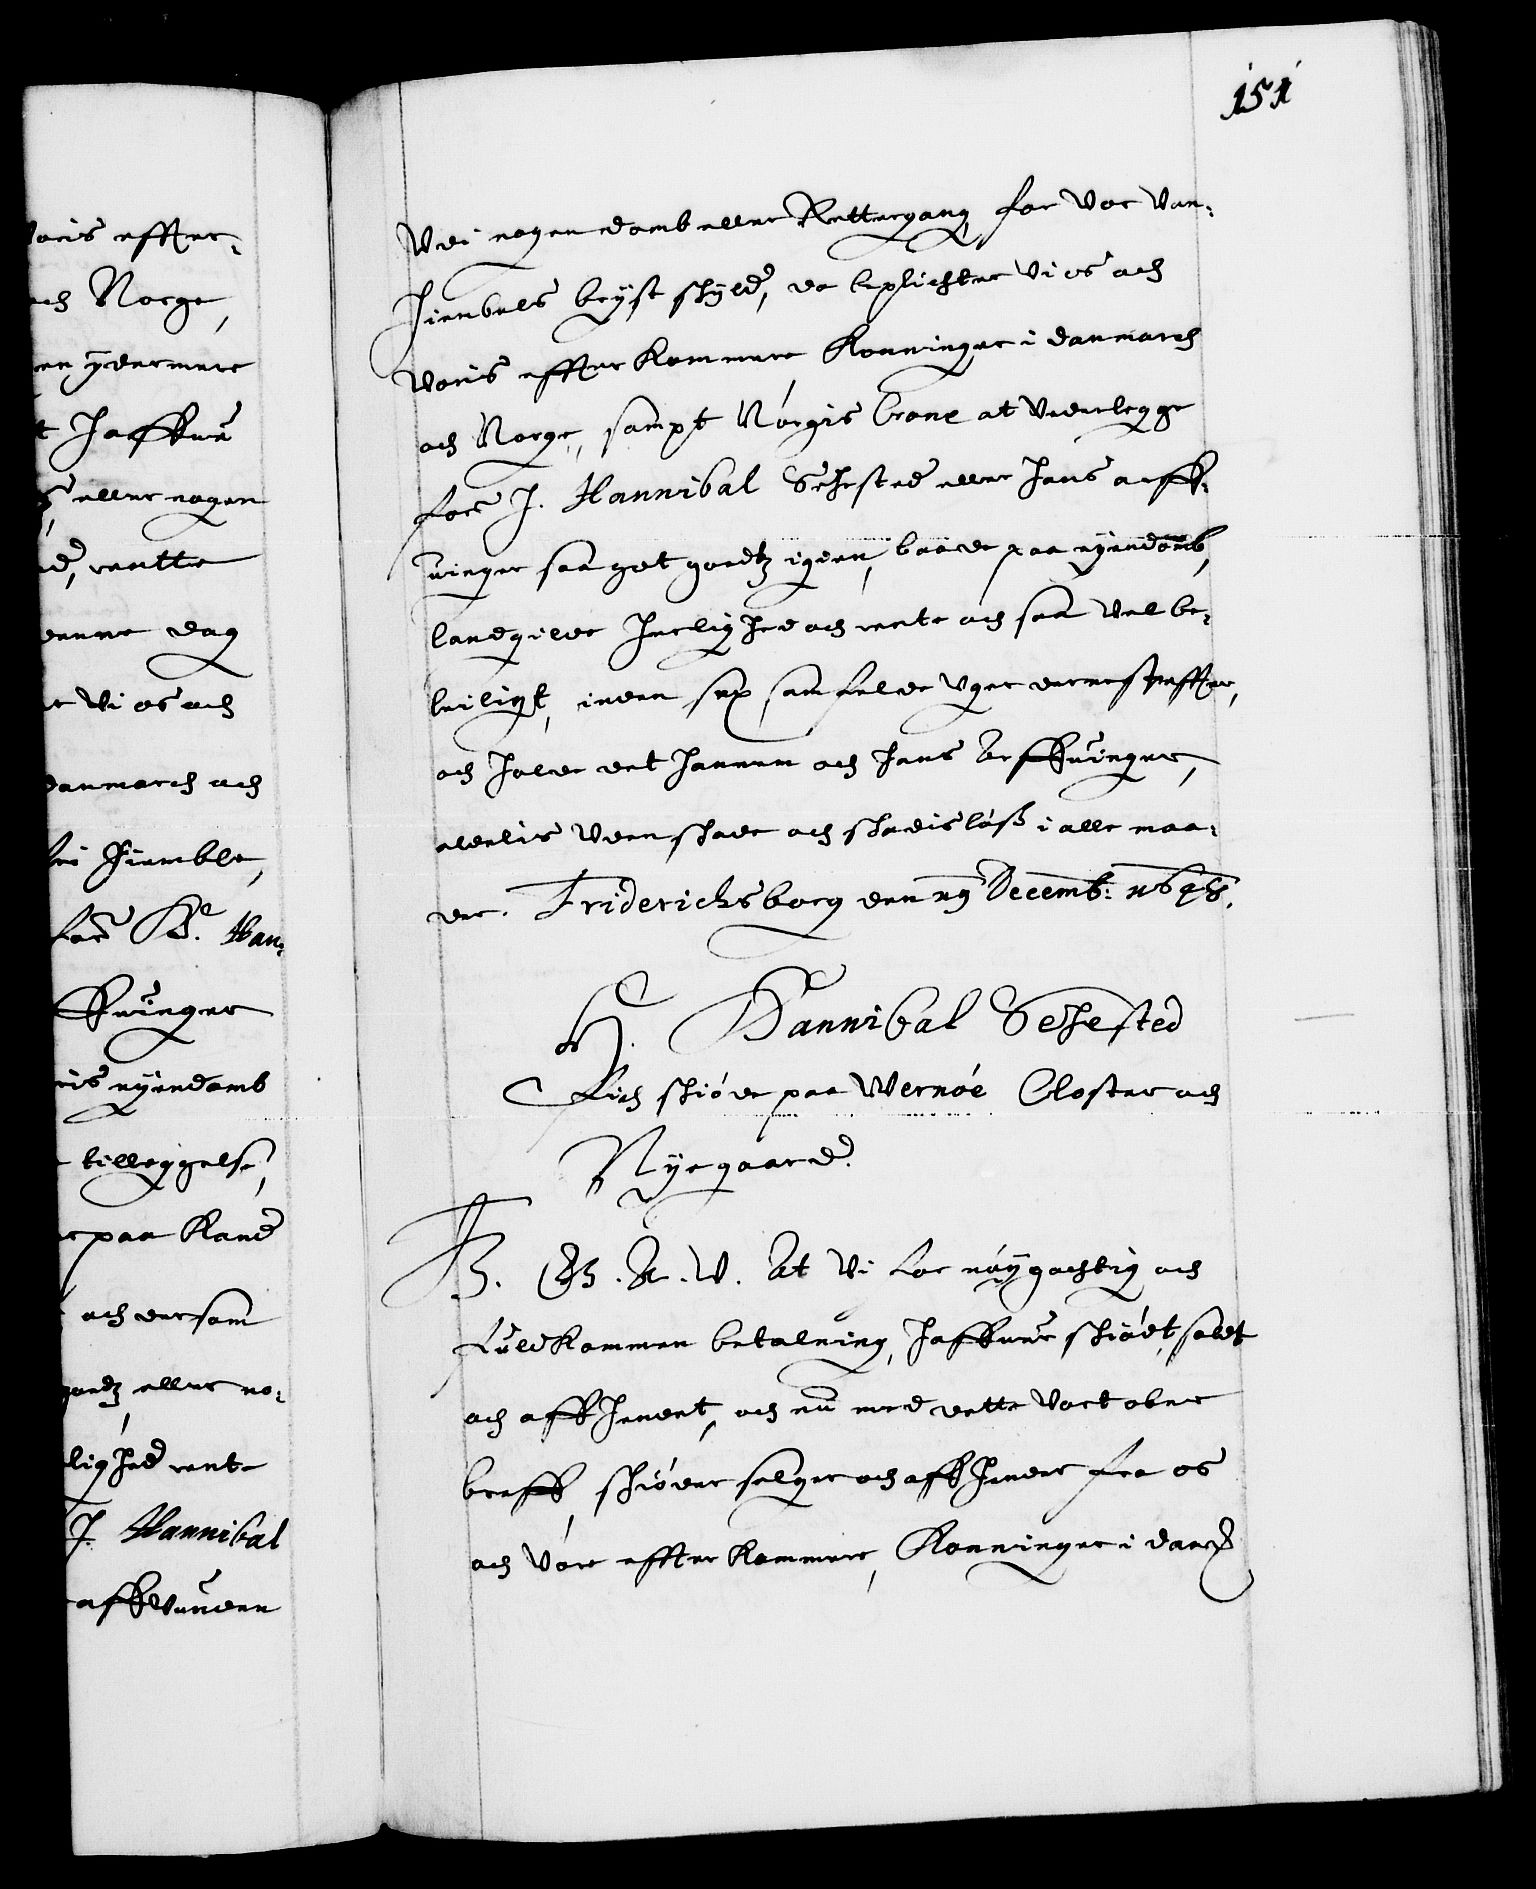 151
Vdi nogen domb eller Rettergang for Vor Van-
hiembels brijst skyld, da beplichter Vi os och
Voris effterkommere Konninger i danmarch
och Norge, sampt Nórgis Crone at Vederlegge
for H. Hannibal Sehested eller hans arff-
uinger saa got goedtz igien, baade paa eyendomb,
landgilde herlighed och rente och saa Vel be-
leiligt, inden sex samfelde Vger dernest effter,
och holde det hannem och hans Arffuinger,
aldelis Vden skade och skadisløs i alle maa-
der. Friderichsborg den 19 Decemb: 1648.
H. Hannibal Sehested
Fich skiøde paa Wernóe Closter och
Nyegaard.
F. G. A. V. At Vi for nóygachtig och
fuldkommen betalning, haffuer skiødt, soldt
och affhendt, och nu med dette Vort obne
breff, skióder selger och affhender fra os
och Vóre effterkommere, Konninger i danch
Voris effter-
och Norge,
en ydermere
t haffuer
eller nogen
d, rentte
denne dag
r Vi os och
danmarch och
hiemble,
for H. Han-
ffuinger
is eyendomb
tilleggelse,
paa Kand
och dersom
goedtz eller no-
lighed rente
H. Hannibal
affVunden